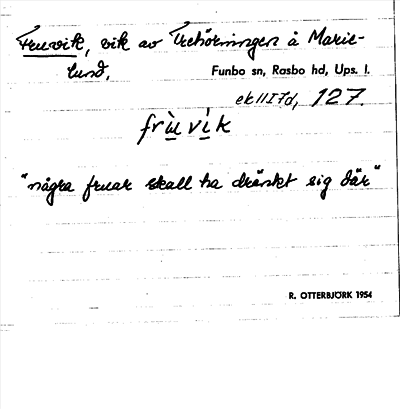 Fruvik, vik av Trehörningen å Marie-
lund,
Funbo sn, Rasbo hd, Ups. l.
ek 11I7d, 127
frùvík
"några fruar skall ha dränkt sig där"
R. OTTERBJÖRK 1954